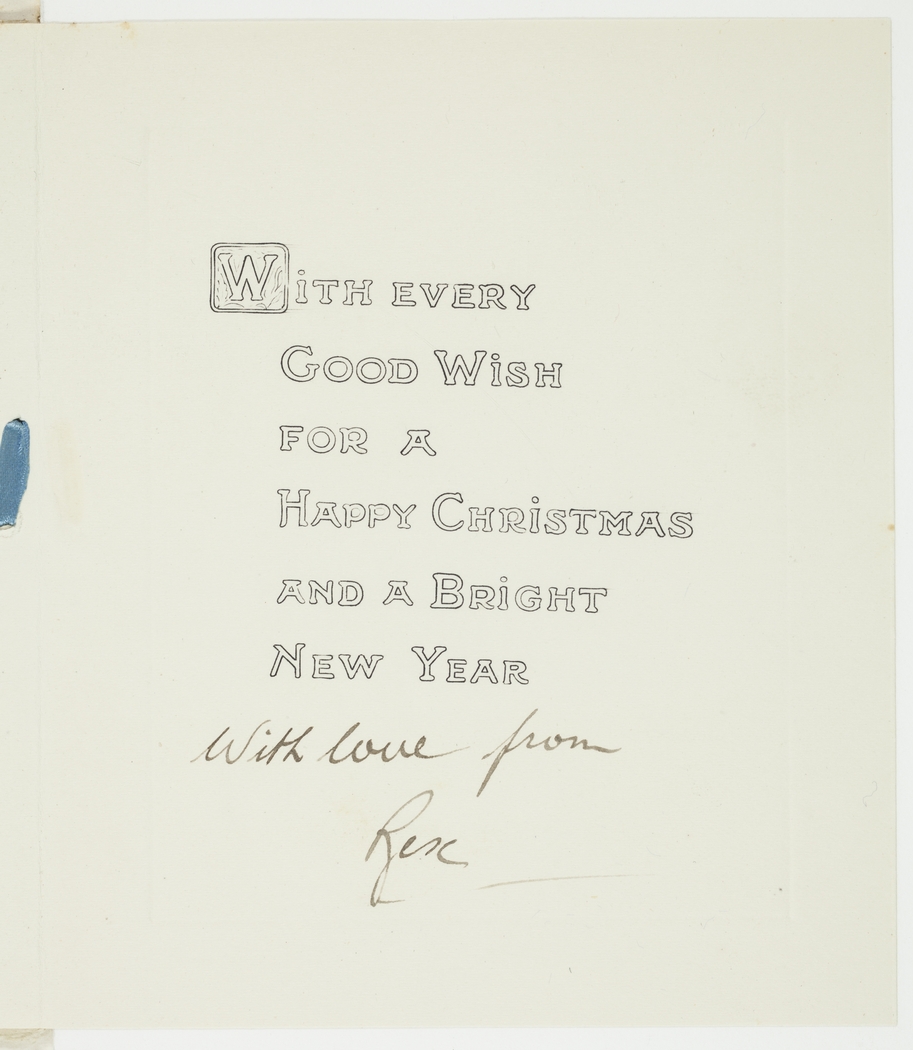 With every
Good Wish
for a
Happy Christmas
and a Bright
New Year
With love from
Rex